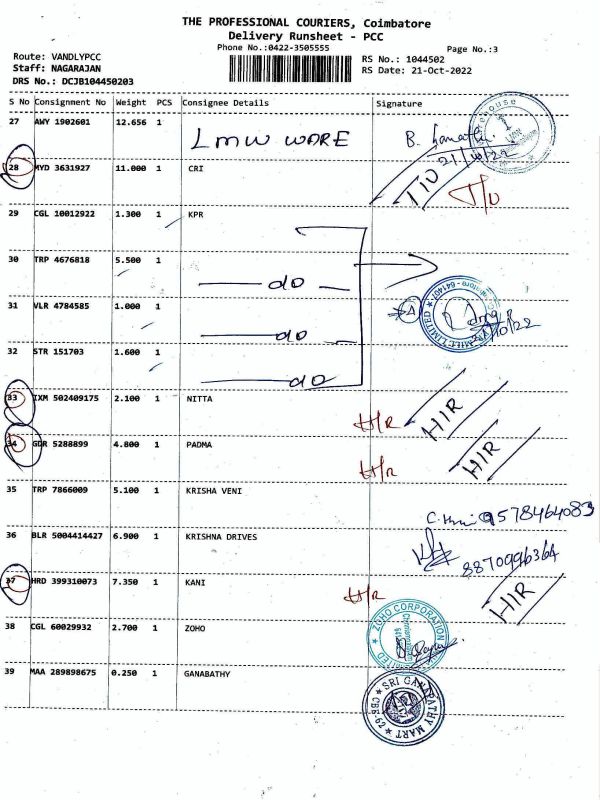 THE PROFESSIONAL COURIERS, Coimbatore
Delivery Runsheet - PCC
Phone No.:0422-3505555
Page No.:3
Route: VANDLYPCC
Staff: NAGARAJAN
DRS No.: DCJB104450203
RS No.: 1044502
RS Date: 21-Oct-2022
S No Consignment No Weight PCS Consignee Details Signature
27 AWY 1902601 12.656 1 LMW WARE
21/10/22
28 MYD 3631927 11.000 1 CRI T/U T/U
29 CGL 10012922 1.300 1 KPR
30 TRP 4676818 5.500 1 do
31 VLR 4784585 1.000 1 do
32 STR 151703 1.600 1 do
33 IXM 502409175 2.100 1 NITTA H/R H/R
34 GDR 5288899 4.800 1 PADMA H/R H/R
35 TRP 7866009 5.100 1 KRISHA VENI 9578464083
36 BLR 5004414427 6.900 1 KRISHNA DRIVES 8870996364
37 HRD 399310073 7.350 1 KANI H/R H/R
38 CGL 60029932 2.700 1 ZOHO
ZOHO CORPORATION
39 MAA 289898675 0.250 1 GANABATHY
SRI GANAPATHY MART